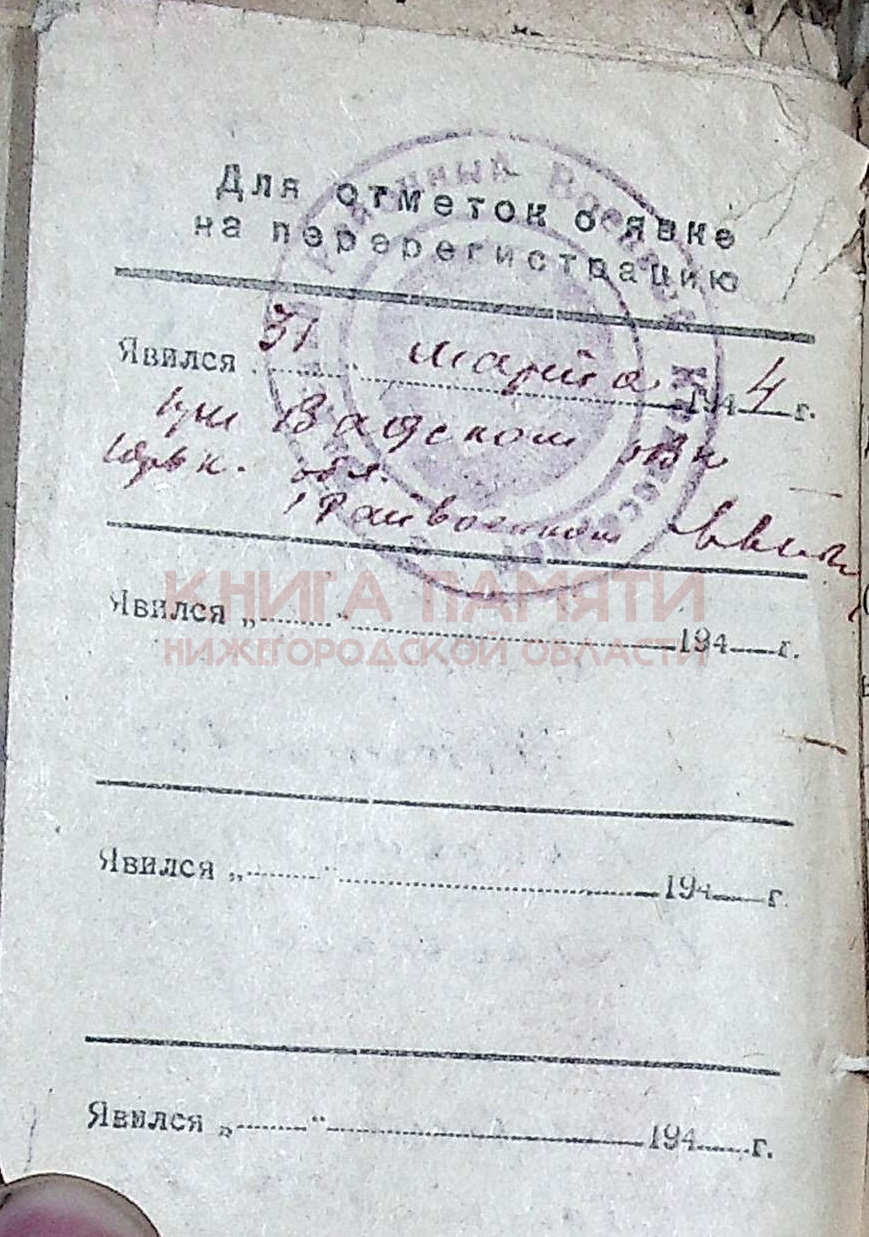 Для отметок о явке
на перерегистрацию
Явился 31 марта 1944 г.
при Вадском РВК
Горьк. обл.
Райвоенком
КНИГА ПАМЯТИ
НИЖЕГОРОДСКОЙ ОБЛАСТИ
Явился „ “ 194 г.
Явился „ “ 194 г.
Явился „ “ 194 г.
Районный Военный Комиссариат